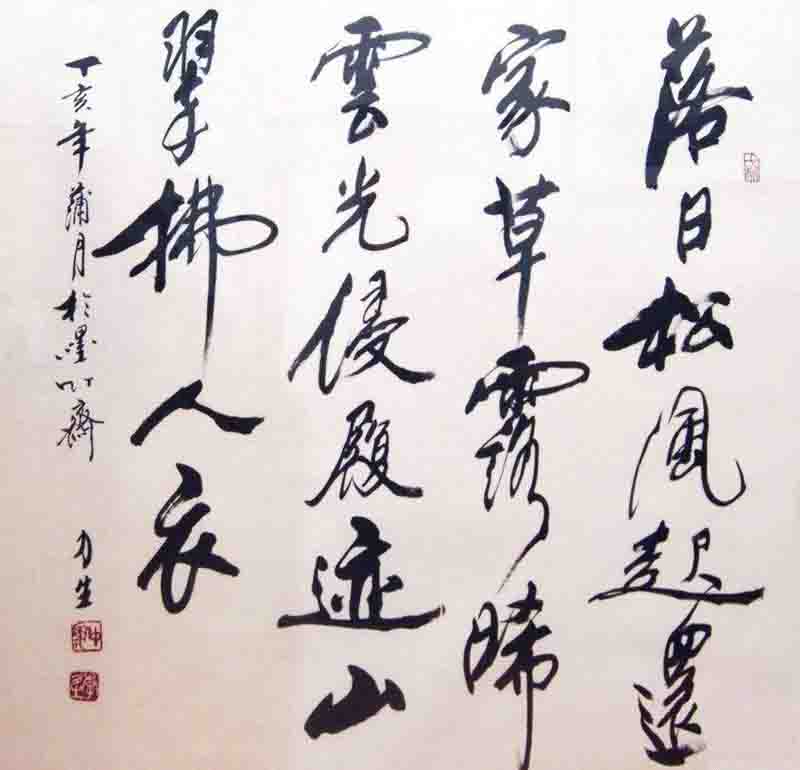 落日松風起還
家草露晞
雲光侵履迹山
翠拂人衣
丁亥年蒲月於墨竹齋
力生